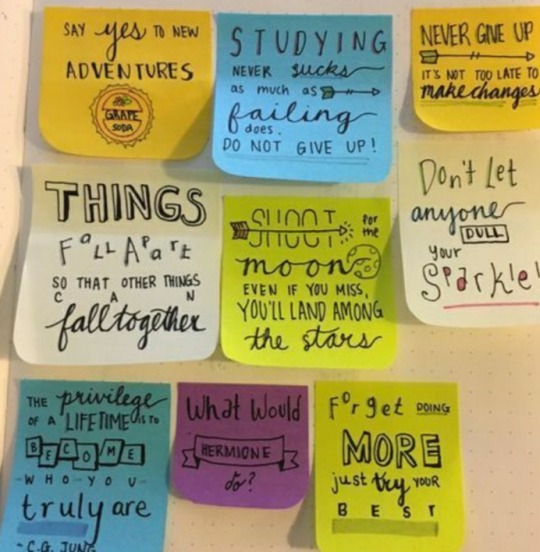 SAY yes TO NEW
ADVENTURES
GRAPE
SODA
STUDYING
NEVER sucks
as much as
failing
does.
DO NOT GIVE UP!
NEVER GIVE UP
IT'S NOT TOO LATE TO
make changes
THINGS
FALL APART
SO THAT OTHER THINGS
CAN
fall together
SHOOT for
the
moon
EVEN IF YOU MISS,
YOU'LL LAND AMONG
the stars
Don't let
anyone
DULL
your
Sparkle!
THE privilege
OF A LIFETIME IS TO
BECOME
WHO YOU
truly are
- C.G. JUNG
What Would
HERMIONE
do?
Forget DOING
MORE
just try YOUR
BEST